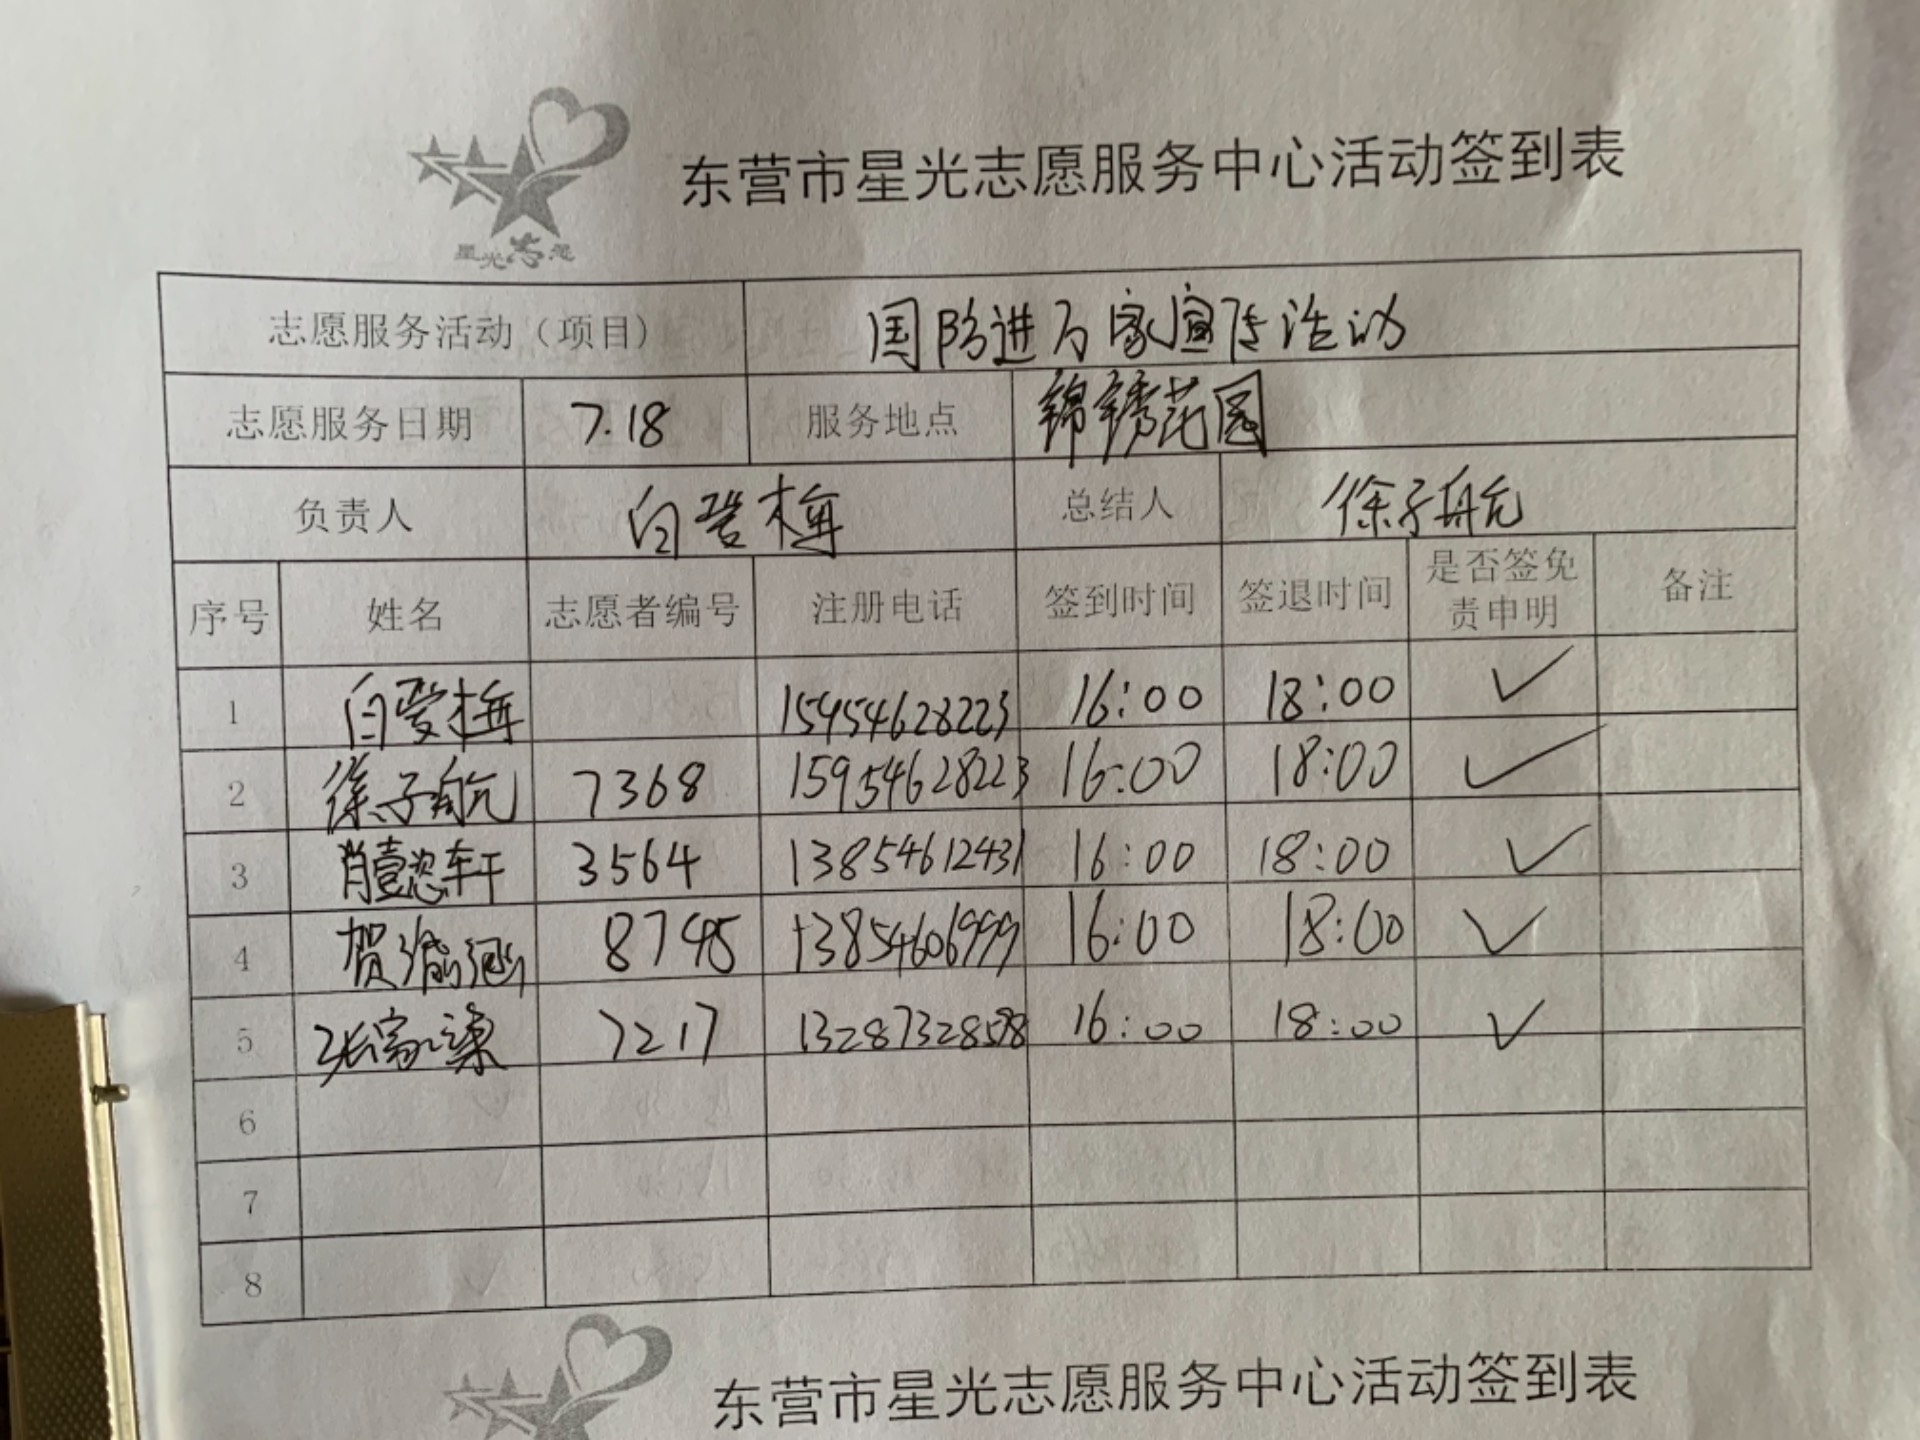 东营市星光志愿服务中心活动签到表
星光志愿
志愿服务活动（项目） 国防进万家宣传活动
志愿服务日期 7.18 服务地点 锦锈花园
负责人 白爱梅 总结人 徐子航
序号 姓名 志愿者编号 注册电话 签到时间 签退时间 是否签免责申明 备注
1 白爱梅 15954628223 16:00 18:00 ✓
2 徐子航 7368 15954628223 16:00 18:00 ✓
3 肖壹恣轩 3564 13854612431 16:00 18:00 ✓
4 贺 8745 13854606999 16:00 18:00 ✓
5 张家 7217 13287328578 16:00 18:00 ✓
6
7
8
东营市星光志愿服务中心活动签到表